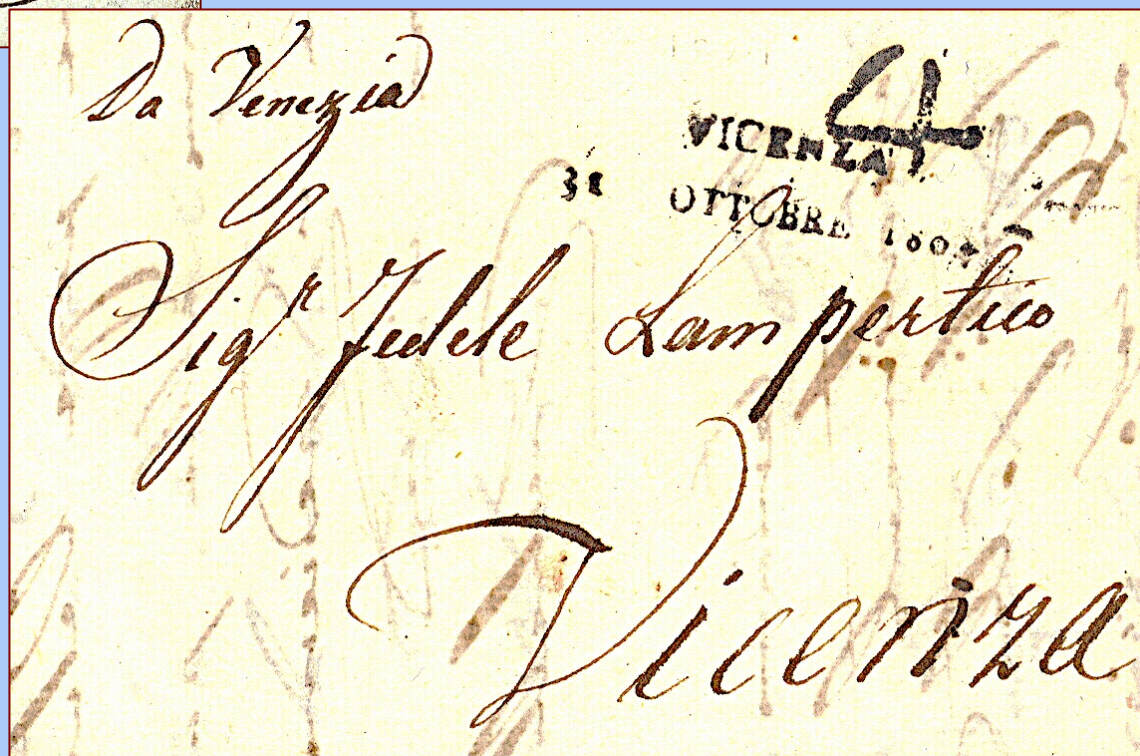 Da Venezia
4
VICENZA
31 OTTOBRE
Sig.r Fedele Lampertico
Vicenza